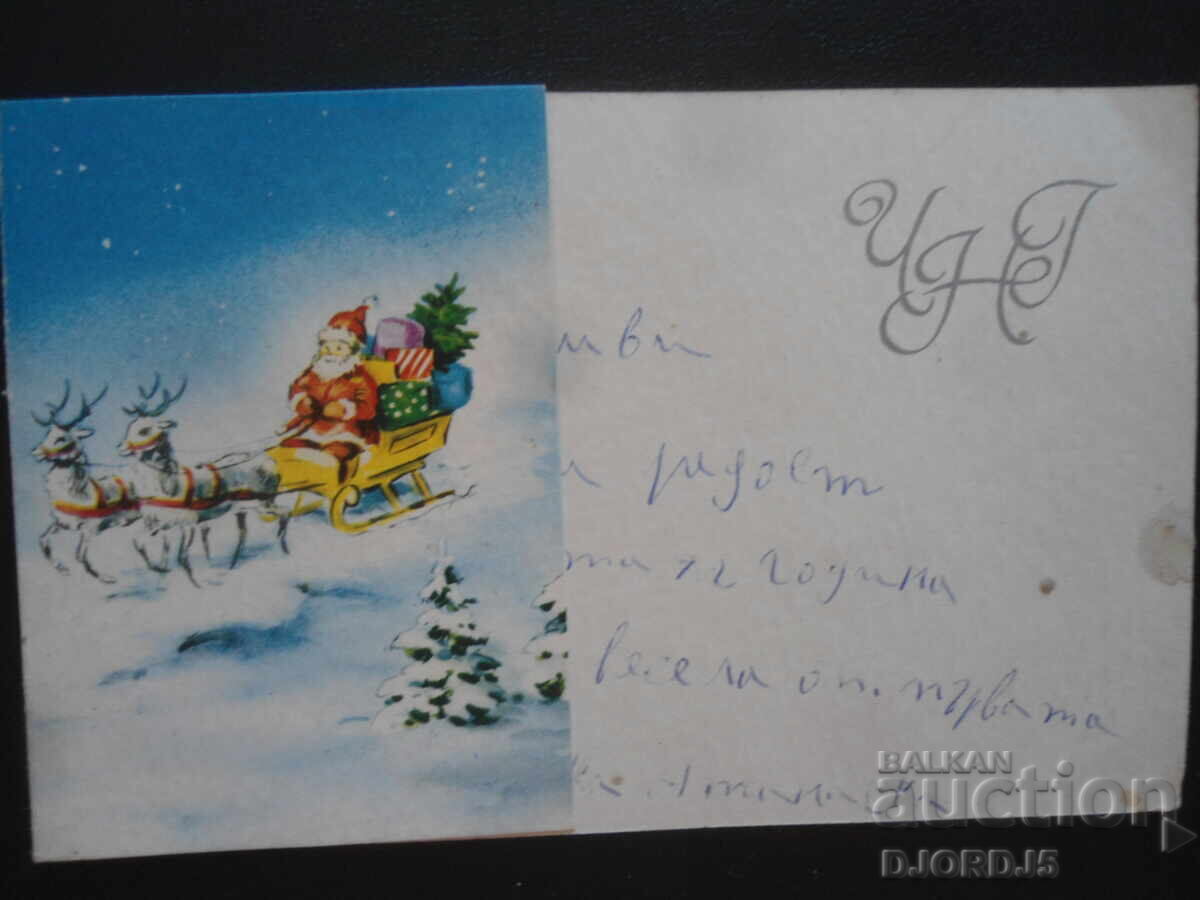 ЧНГ
иви
и радост
та х г година
весела от първата
BALKAN
auction
DJORDJ5